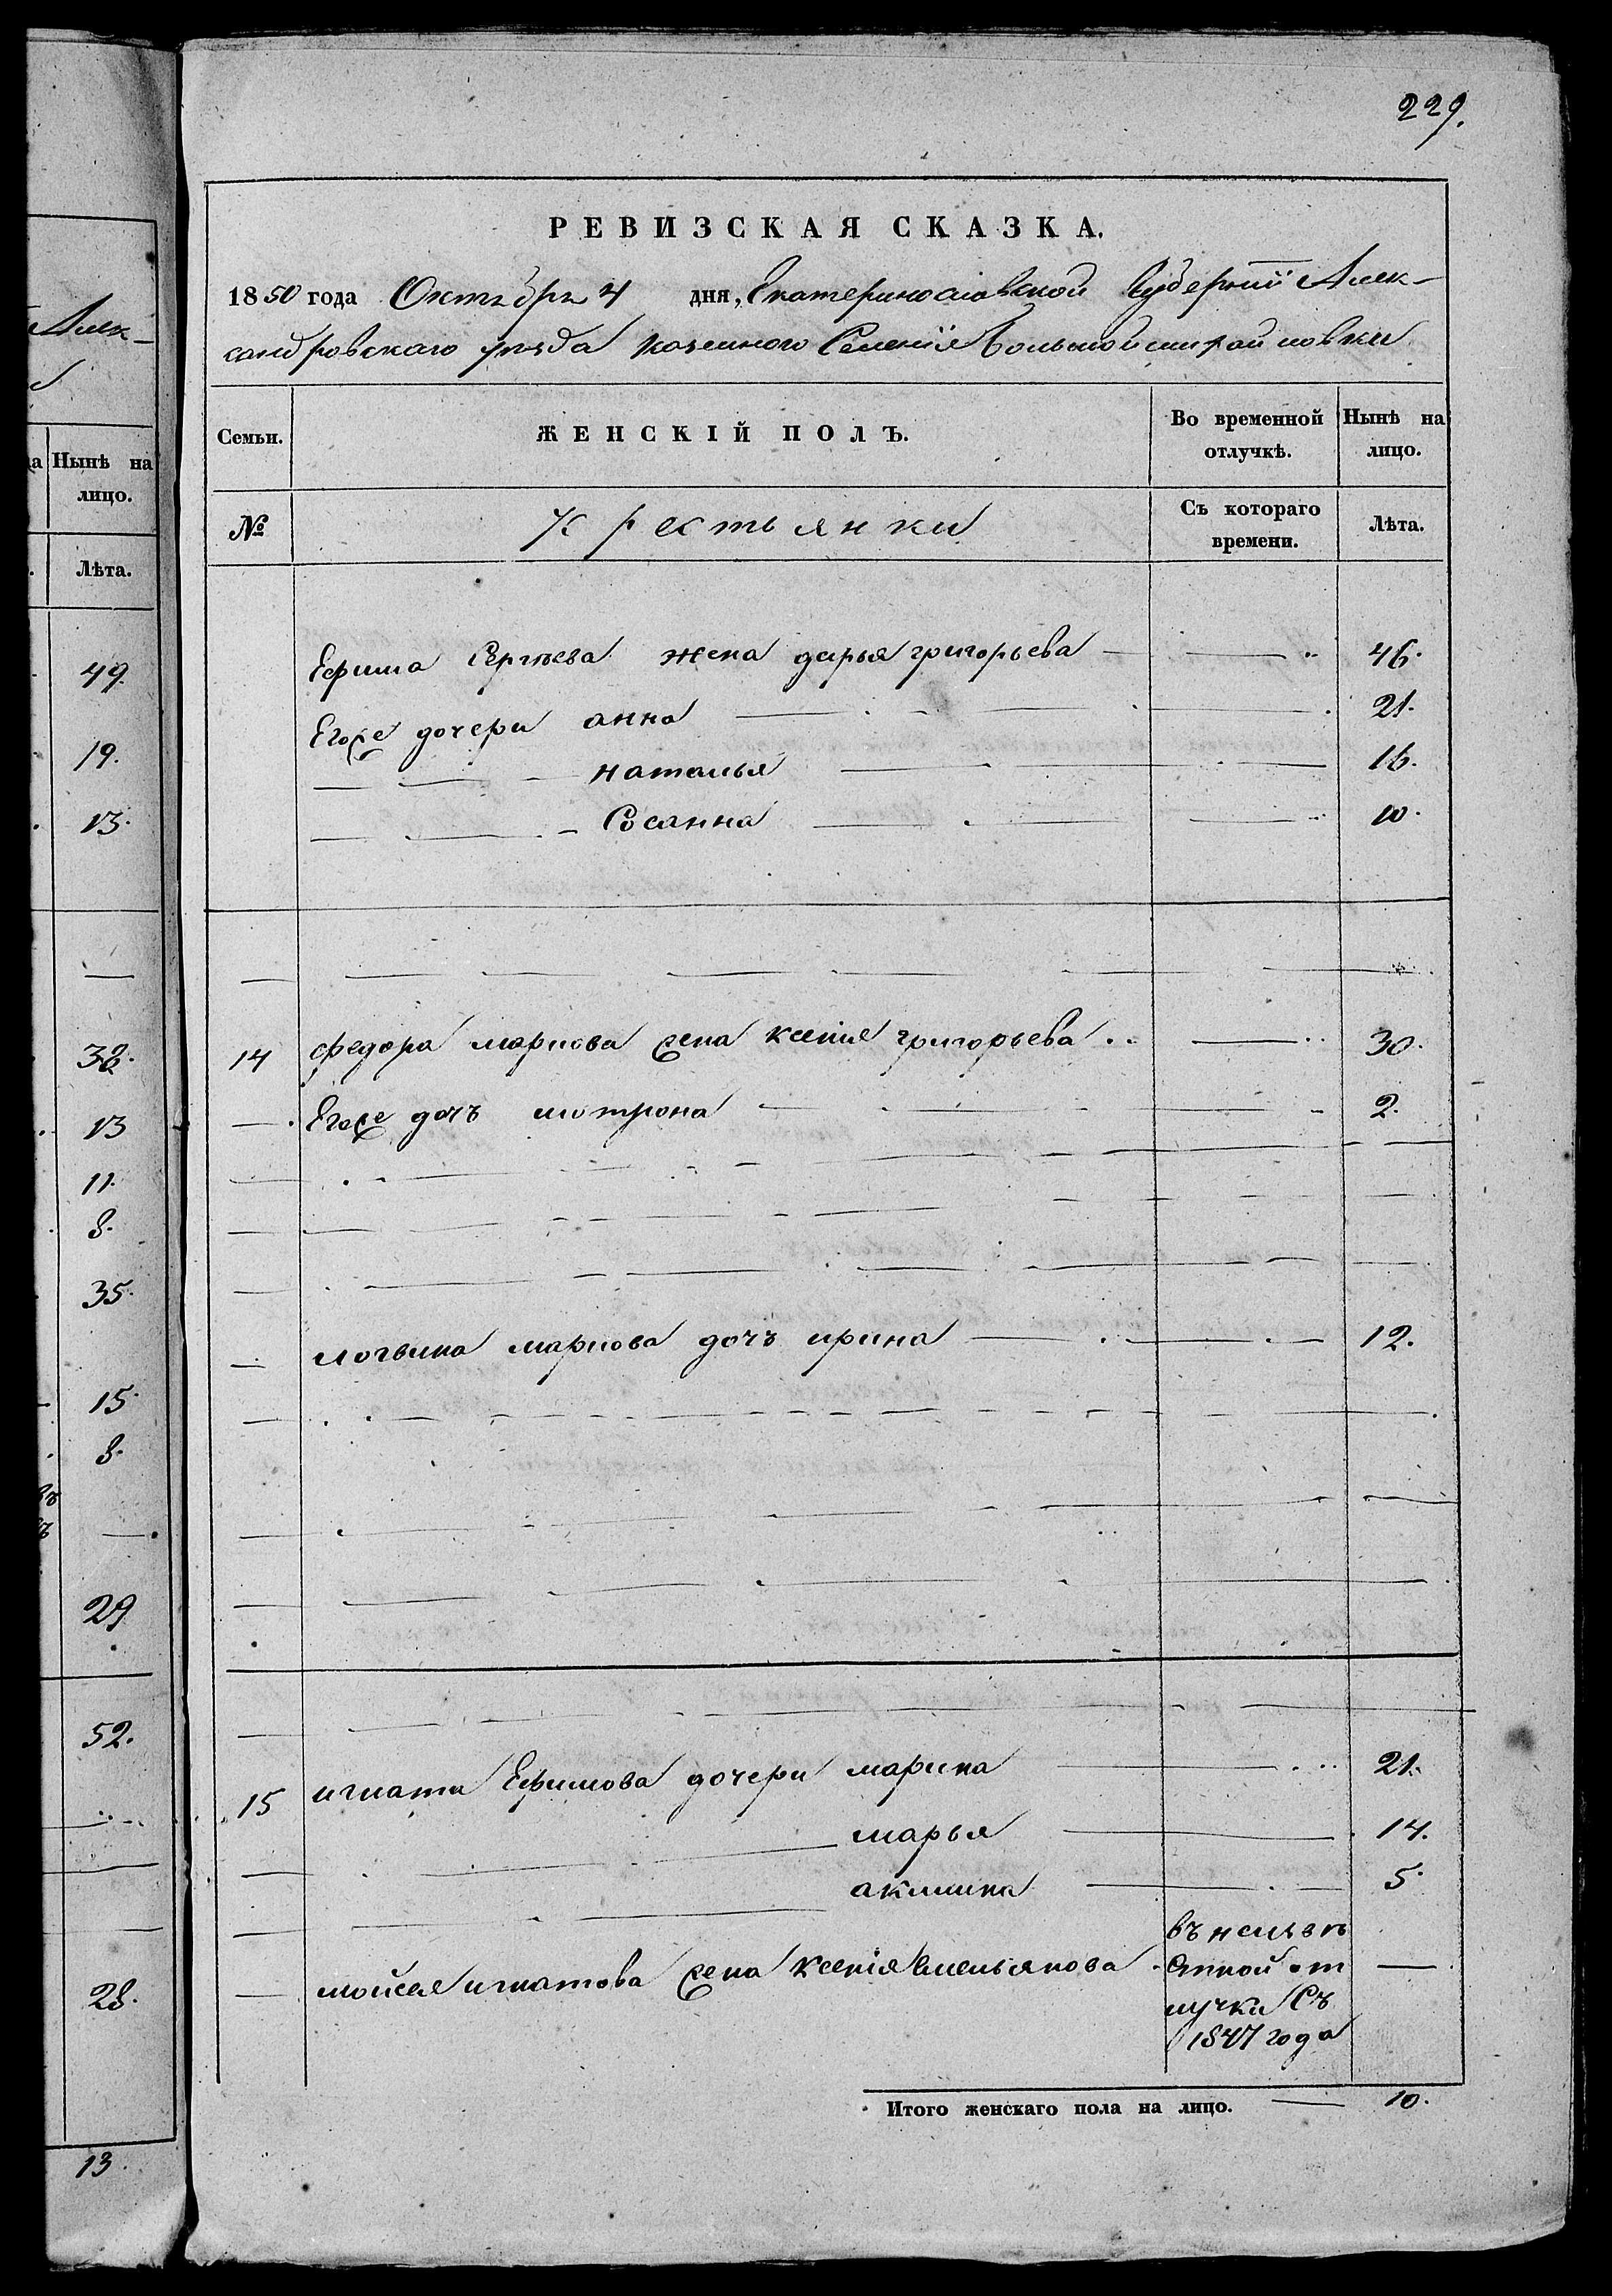 229.
РЕВИЗСКАЯ СКАЗКА.
1850 года Октября 4 дня, Екатеринославской Губернiи Алек-
сандровского уезда казенного Селенiя Большой михайловки
Семьи.
ЖЕНСКІЙ ПОЛЪ.
Во временной отлучкѣ.
Нынѣ на лицо.
№
Крестьянки
Съ котораго времени.
Лѣта.
Ефима Сергѣева жена дарья григорьева 46.
Егоже дочери анна 21.
наталья 16.
Сосанна 10.
14 федора маркова жена ксенiя григорьева 30.
Егоже дочъ мотрона 2.
логвина маркова дочъ ирина 12.
15 игната Ефимова дочери марина 21.
марья 14.
акилина 5.
мойсея игнатова жена ксенiя Емельянова въ неизвѣ
стной от
лучки Съ
1847 года
Итого женскаго пола на лицо. 10.
Алек-
Нынѣ на
лицо.
Лѣта.
49.
19.
13.
38.
13
11.
8.
35.
15.
8.
29
52.
28.
13.